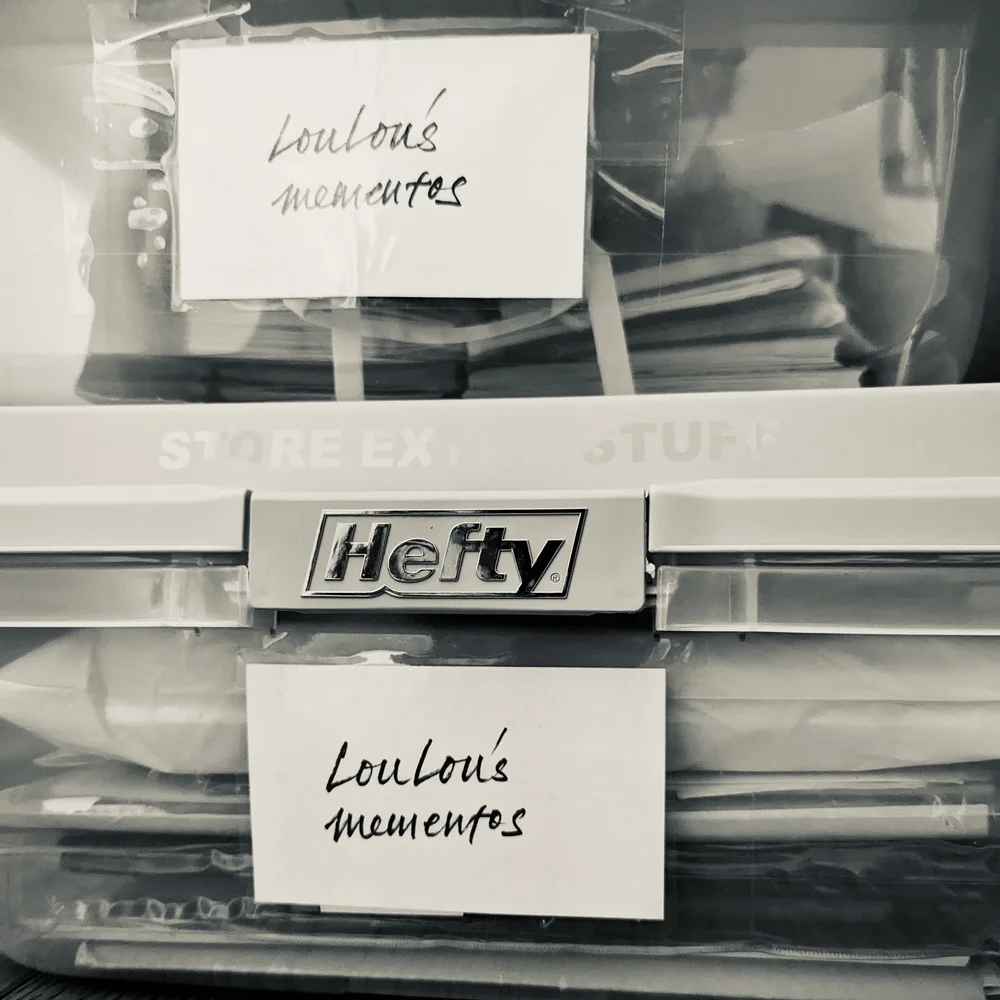 LouLou's
mementos
STORE EXTRA STUFF
Hefty®
LouLou's
mementos